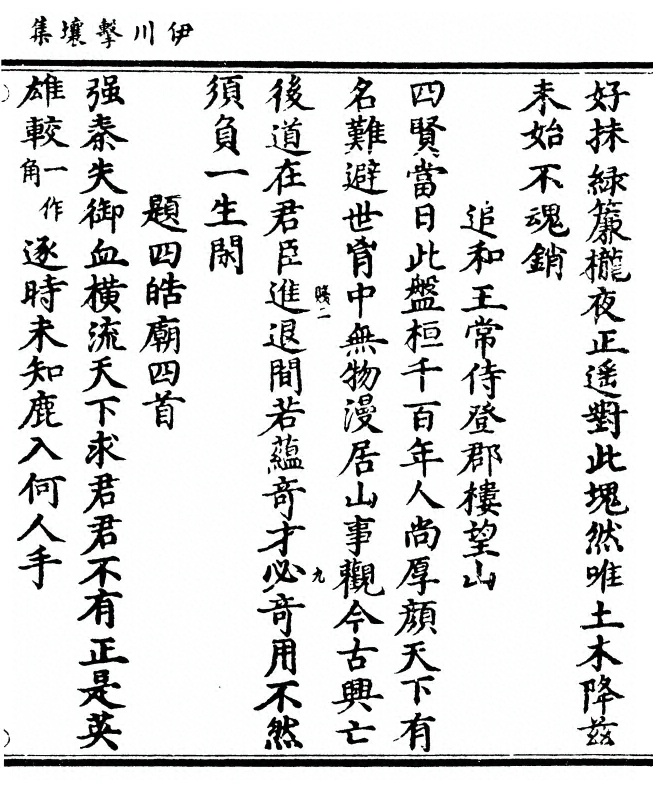 伊川擊壤集
好抹綠簾櫳夜正遥對此塊然唯土木降茲
未始不魂銷
追和王常侍登郡樓望山
四賢當日此盤桓千百年人尚厚顔天下有
名難避世胷中無物漫居山事觀今古興亡
後道在君臣進退間若蘊竒才必竒用不然
牋二
九
須負一生閑
題四皓廟四首
强秦失御血橫流天下求君君不有正是英
雄較一作角逐時未知鹿入何人手